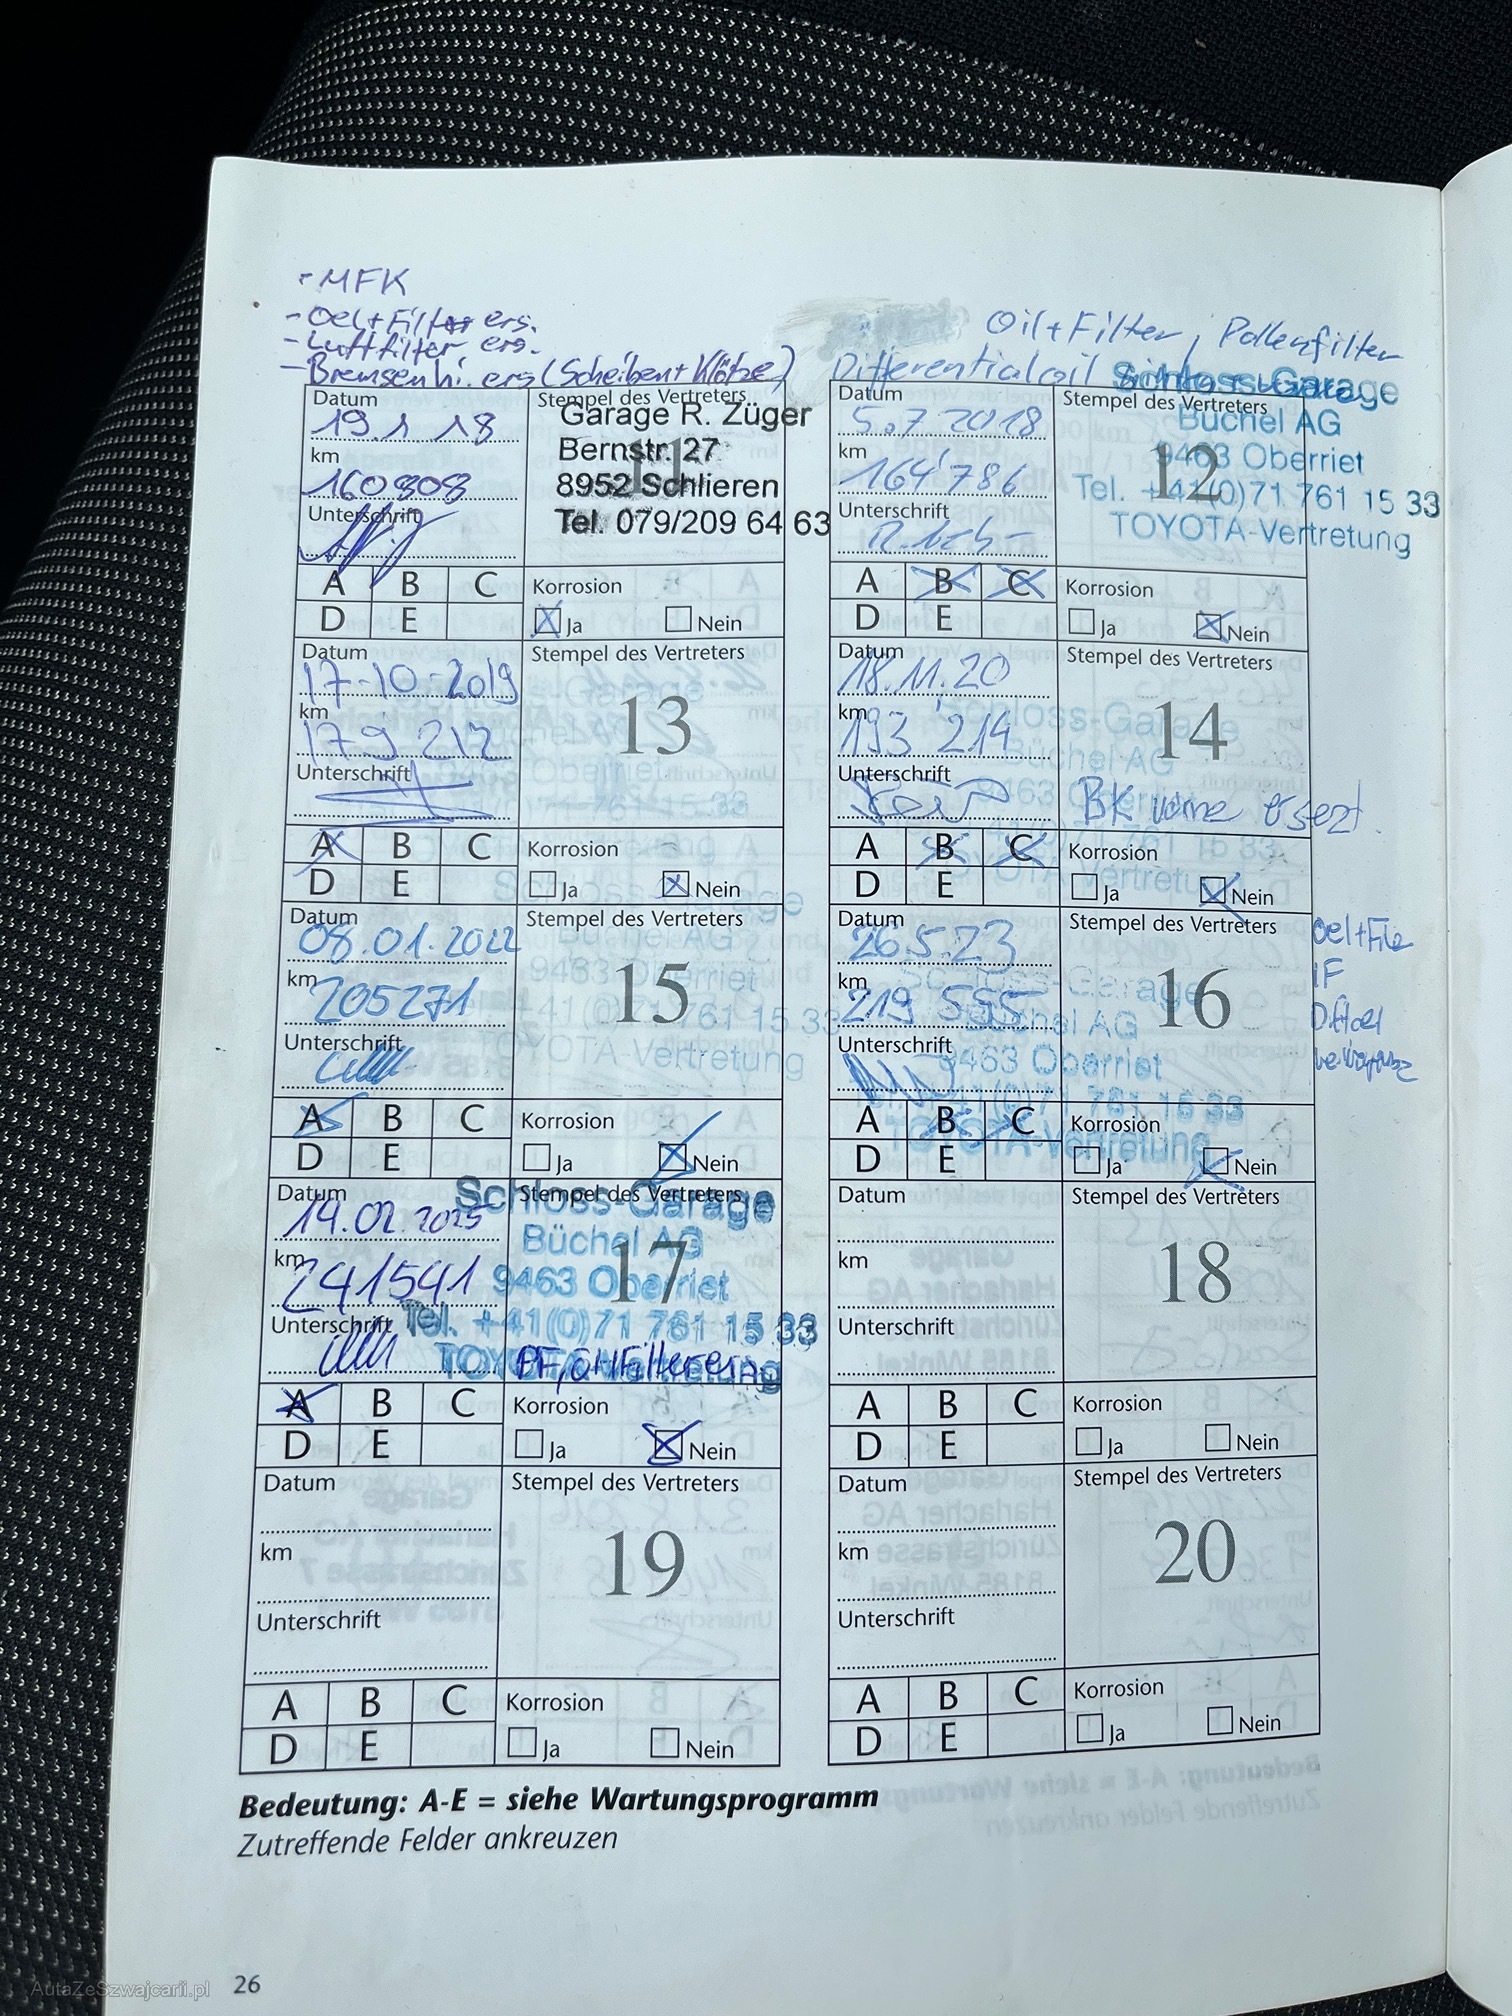 - MFK
- Oel + Filter ers.
- Luftfilter ers.
- Bremsen hi. ers (Scheiben + Klötze)
Datum
19.1 18
km
160808
Unterschrift
Stempel des Vertreters
11
Garage R. Züger
Bernstr. 27
8952 Schlieren
Tel. 079/209 64 63
A B C
D E
Korrosion
Ja Nein
Oil + Filter, Pollenfilter
Differentialoil
Datum
5.7.2018
km
164'786
Unterschrift
Stempel des Vertreters
12
Schloss-Garage
Büchel AG
9463 Oberriet
Tel. +41(0)71 761 15 33
TOYOTA-Vertretung
A B C
D E
Korrosion
Ja Nein
Datum
17-10-2019
km
179 212
Unterschrift
Stempel des Vertreters
13
Schloss-Garage
Büchel AG
9463 Oberriet
Tel. +41(0)71 761 15 33
TOYOTA-Vertretung
A B C
D E
Korrosion
Ja Nein
Datum
18.11.20
km
193'214
Unterschrift
Stempel des Vertreters
14
Schloss-Garage
Büchel AG
9463 Oberriet
Tel. +41(0)71 761 15 33
TOYOTA-Vertretung
BK vorne
A B C
D E
Korrosion
Ja Nein
Datum
08.01.2022
km
205271
Unterschrift
Stempel des Vertreters
15
Schloss-Garage
Büchel AG
9463 Oberriet
+41(0)71 761 15 33
TOYOTA-Vertretung
A B C
D E
Korrosion
Ja Nein
Datum
26.5.23
km
219 555
Unterschrift
Stempel des Vertreters
16
Schloss-Garage
Büchel AG
9463 Oberriet
Tel. +41(0)71 761 15 33
TOYOTA-Vertretung
Oel + Filt
A B C
D E
Korrosion
Ja Nein
Datum
14.02.2025
km
241541
Unterschrift
Stempel des Vertreters
17
Schloss-Garage
Büchel AG
9463 Oberriet
Tel. +41(0)71 761 15 33
TOYOTA-Vertretung
A B C
D E
Korrosion
Ja Nein
Datum
km
Unterschrift
Stempel des Vertreters
18
A B C
D E
Korrosion
Ja Nein
Datum
km
Unterschrift
Stempel des Vertreters
19
A B C
D E
Korrosion
Ja Nein
Datum
km
Unterschrift
Stempel des Vertreters
20
A B C
D E
Korrosion
Ja Nein
Bedeutung: A-E = siehe Wartungsprogramm
Zutreffende Felder ankreuzen
26
AutaZeSzwajcarii.pl